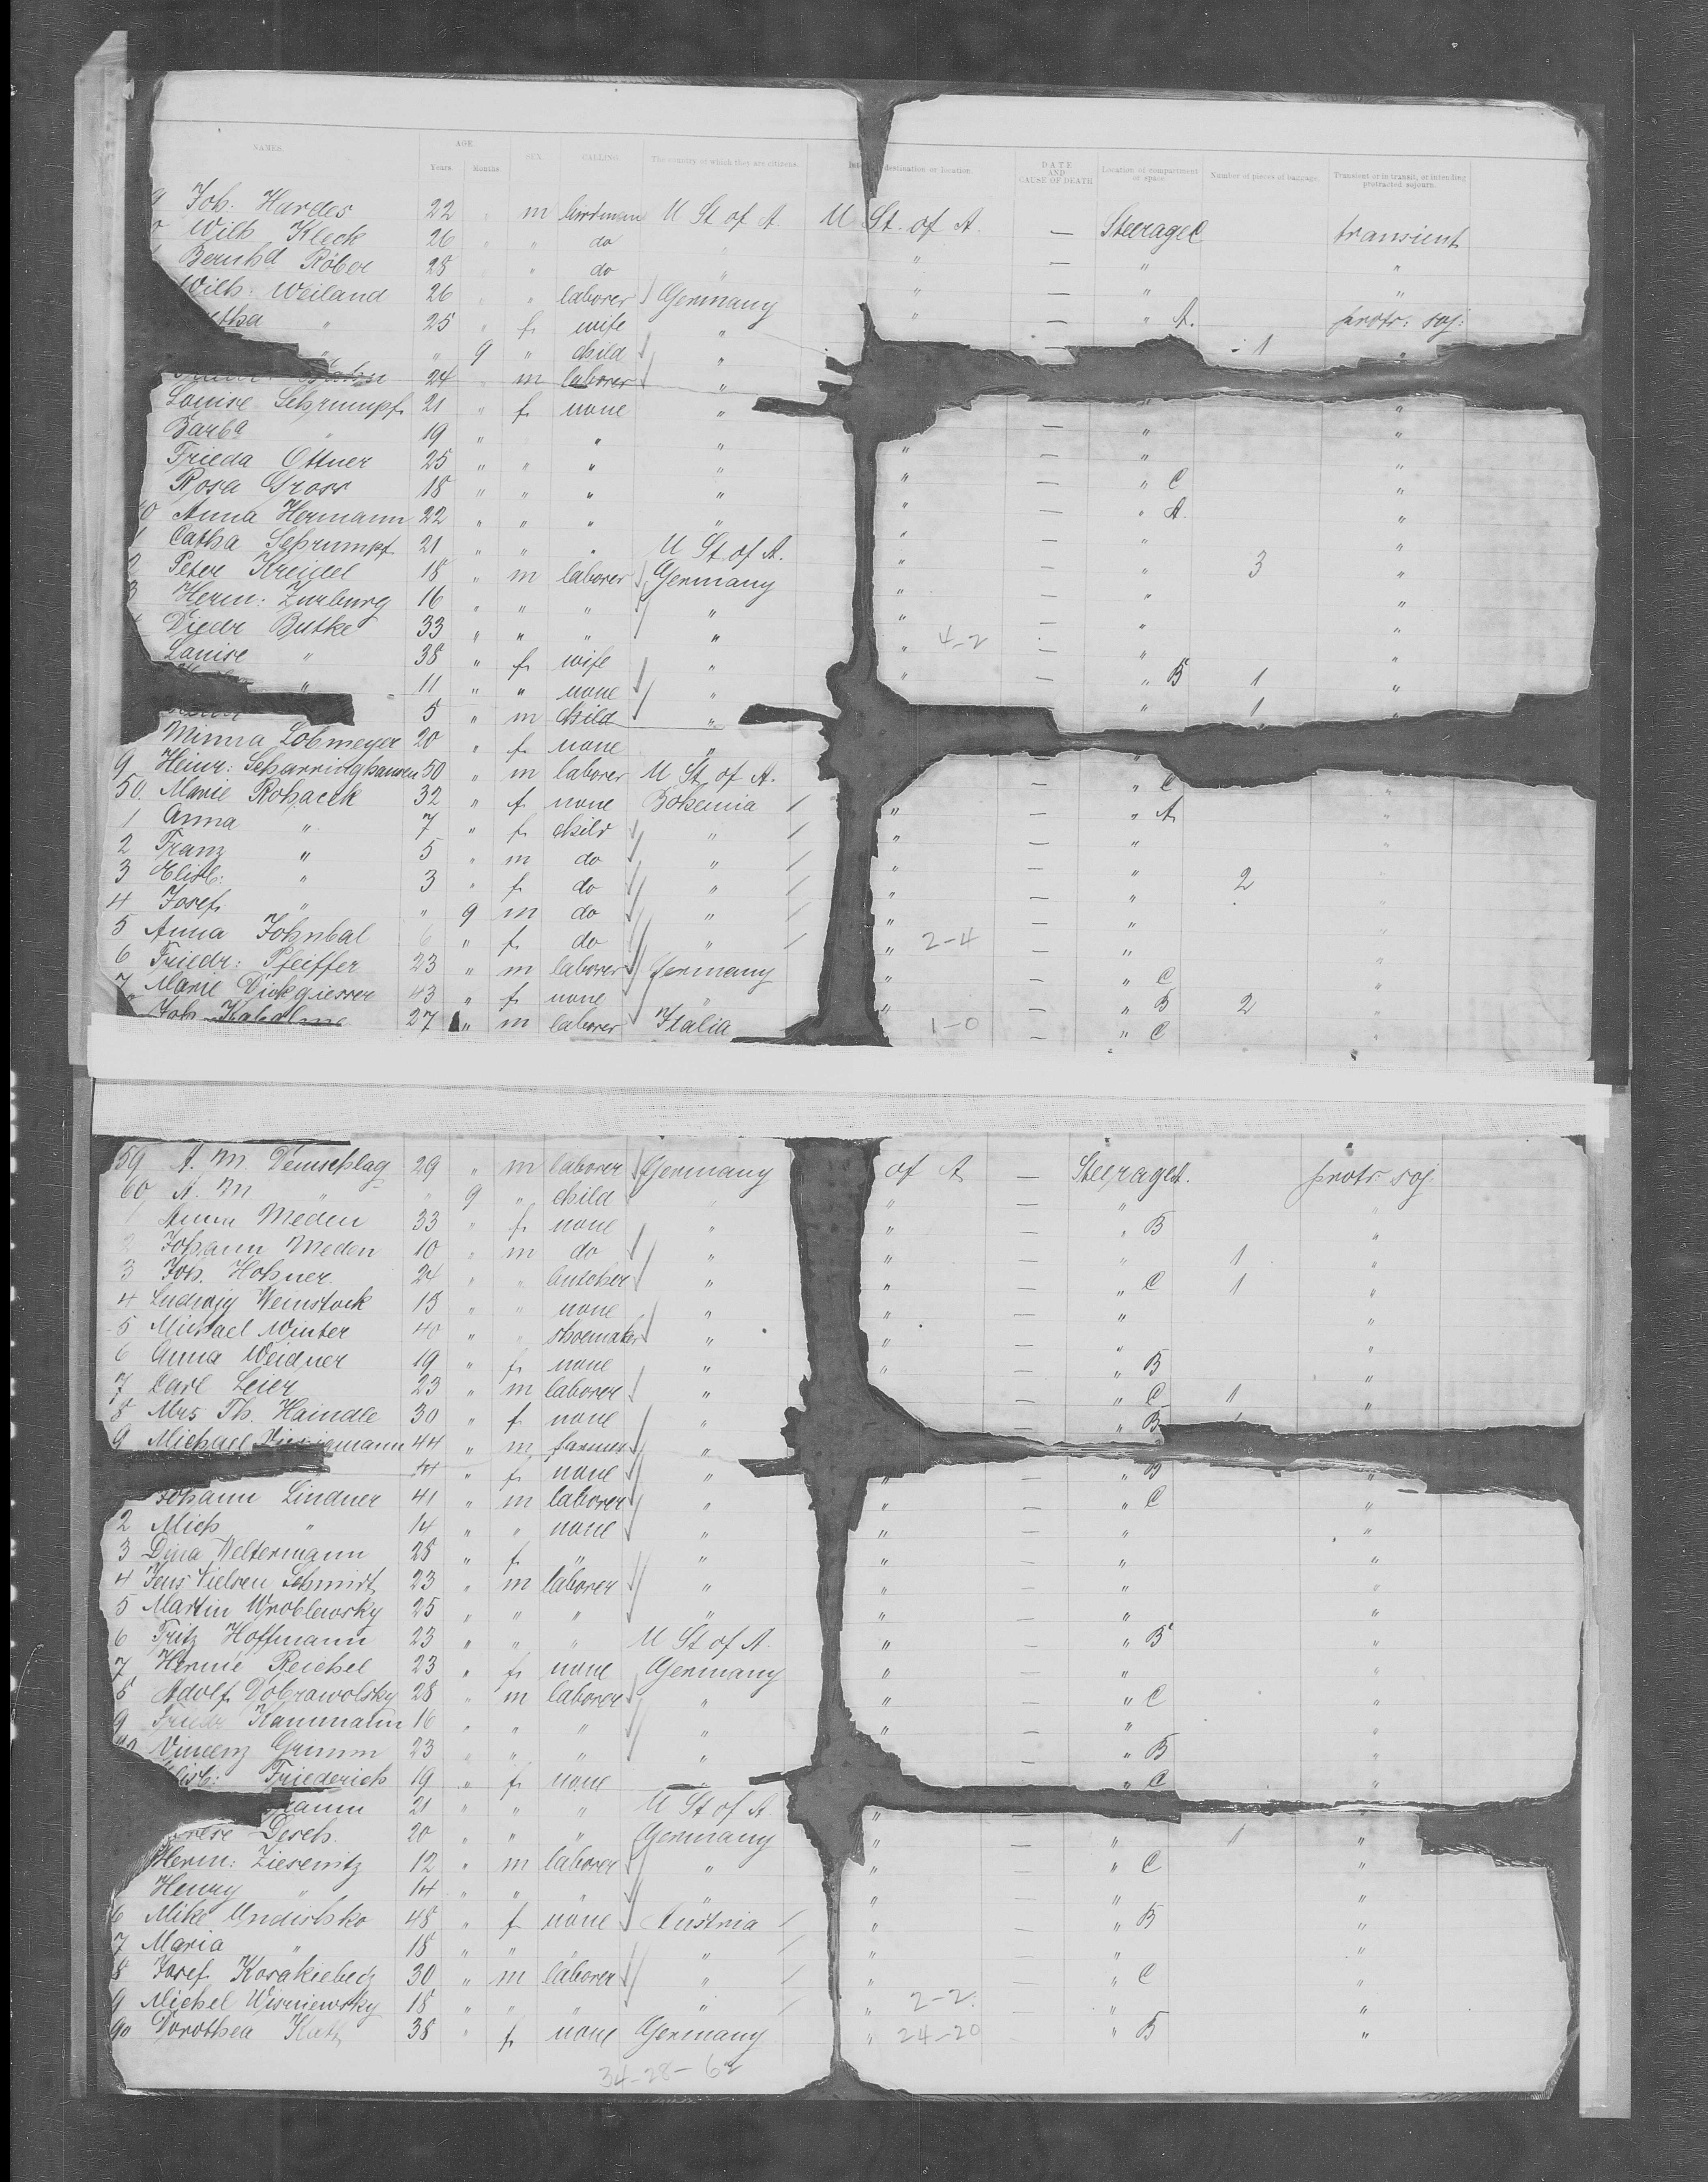 NAMES. AGE. Years. Months. SEX. CALLING. The country of which they are citizens. destination or location. DATE AND CAUSE OF DEATH Location of compartment or space. Number of pieces of baggage. Transient or in transit, or intending protracted sojourn.
9 Joh. Hardes 22 " m U St of A. U St. of A. — Steerage C transient
Wilh Kleck 26 " " do " " — " "
Bernhd Röber 28 " " do " " — " "
Wilh: Weiland 26 " " laborer Germany " — " A. protr: soj:
" 25 " f wife " — 1
" " 9 " child "
24 m laborer "
Louise Schrumpf 21 " f none " "
Barba " 19 " " " — " "
Frieda Ottner 25 " " " " " — " "
Rosa Gross 18 " " " " " — " C "
40 Anna Hermann 22 " " " " " — " A. "
1 Catha Schrumpf 21 " " " U St. of A. " — " "
2 Peter Kreidel 18 " m laborer Germany " — " 3 "
3 Herm: Zurburg 16 " " " " " — " "
Diedr Butke 33 " " " " " 4-2 — " "
Louise " 38 " f wife " " — " B 1 "
" 11 " " none " " 1 "
5 " m child "
Minna Lobmeyer 20 " f none "
9 Heinr: Scharringhausen 50 " m laborer U St. of A. — " C "
50 Marie Rohacek 32 " f none Bohemia " — " A "
1 Anna " 7 " f child " " — " "
2 Franz " 5 " m do " " — " 2 "
3 Elisb: " 3 " f do " " — " "
4 Josef " " 9 m do " " — " "
5 Anna Johnbal 6 " f do " " 2-4 — " "
6 Friedr: Pfeiffer 23 " m laborer Germany " — " C "
7 Marie Dickgiesser 43 " f none " " — " B 2 "
Joh 27 " m laborer Italia 1-0 — " C "
59 A. M Demschlag 29 " m laborer Germany of A — Steerage A. protr: soj
60 A. M " " 9 " child " " — " "
1 Anna Meden 33 " f none " " — " B "
2 Johann Meden 10 " m do " " — " 1 "
3 Joh. Hohner 24 " " butcher " " — " C 1 "
4 Ludwig Weinstock 15 " " none " " — " "
5 Michael Winter 40 " " shoemaker " " — " "
6 Anna Weidner 19 " f none " " — " B "
7 Carl Leier 23 " m laborer " — " C 1 "
8 Mrs Th. Haindle 30 " f none " — " B
9 Michael 44 " m farmer "
44 " f none " " — " B "
Johann Lindner 41 " m laborer " " — " C "
2 Mich " 14 " " none " " — " "
3 Dina Weltermann 28 " f " " " — " "
4 Jens Nielsen Schmidt 23 " m laborer " " — " "
5 Martin Wroblewsky 25 " " " " " — " "
6 Fritz Hoffmann 23 " " " U St of A. " — " B "
7 Hermie Reichel 23 " f none Germany " — " "
8 Adolf Dobrawolsky 28 " m laborer " " — " C "
9 Friedr Kammann 16 " " " " " — " "
Vincenz Grimm 23 " " " " — " B "
Friederich 19 " f none " — " C "
21 " " " U St of A " — "
Desch. 20 " " " Germany " — " 1 "
Herm: Ziesenitz 12 " m laborer " " — " C "
Henry " 14 " " " " " — " "
6 Mike 48 " f none Austria " — " B "
7 Maria " 18 " " " " " — " "
8 Josef 30 " m laborer " " — " C "
9 Michel Wisniewsky 18 " " " " " 2-2. — " "
90 Dorothea Kath 38 " f none Germany " 24-20 " B "
34-28-62